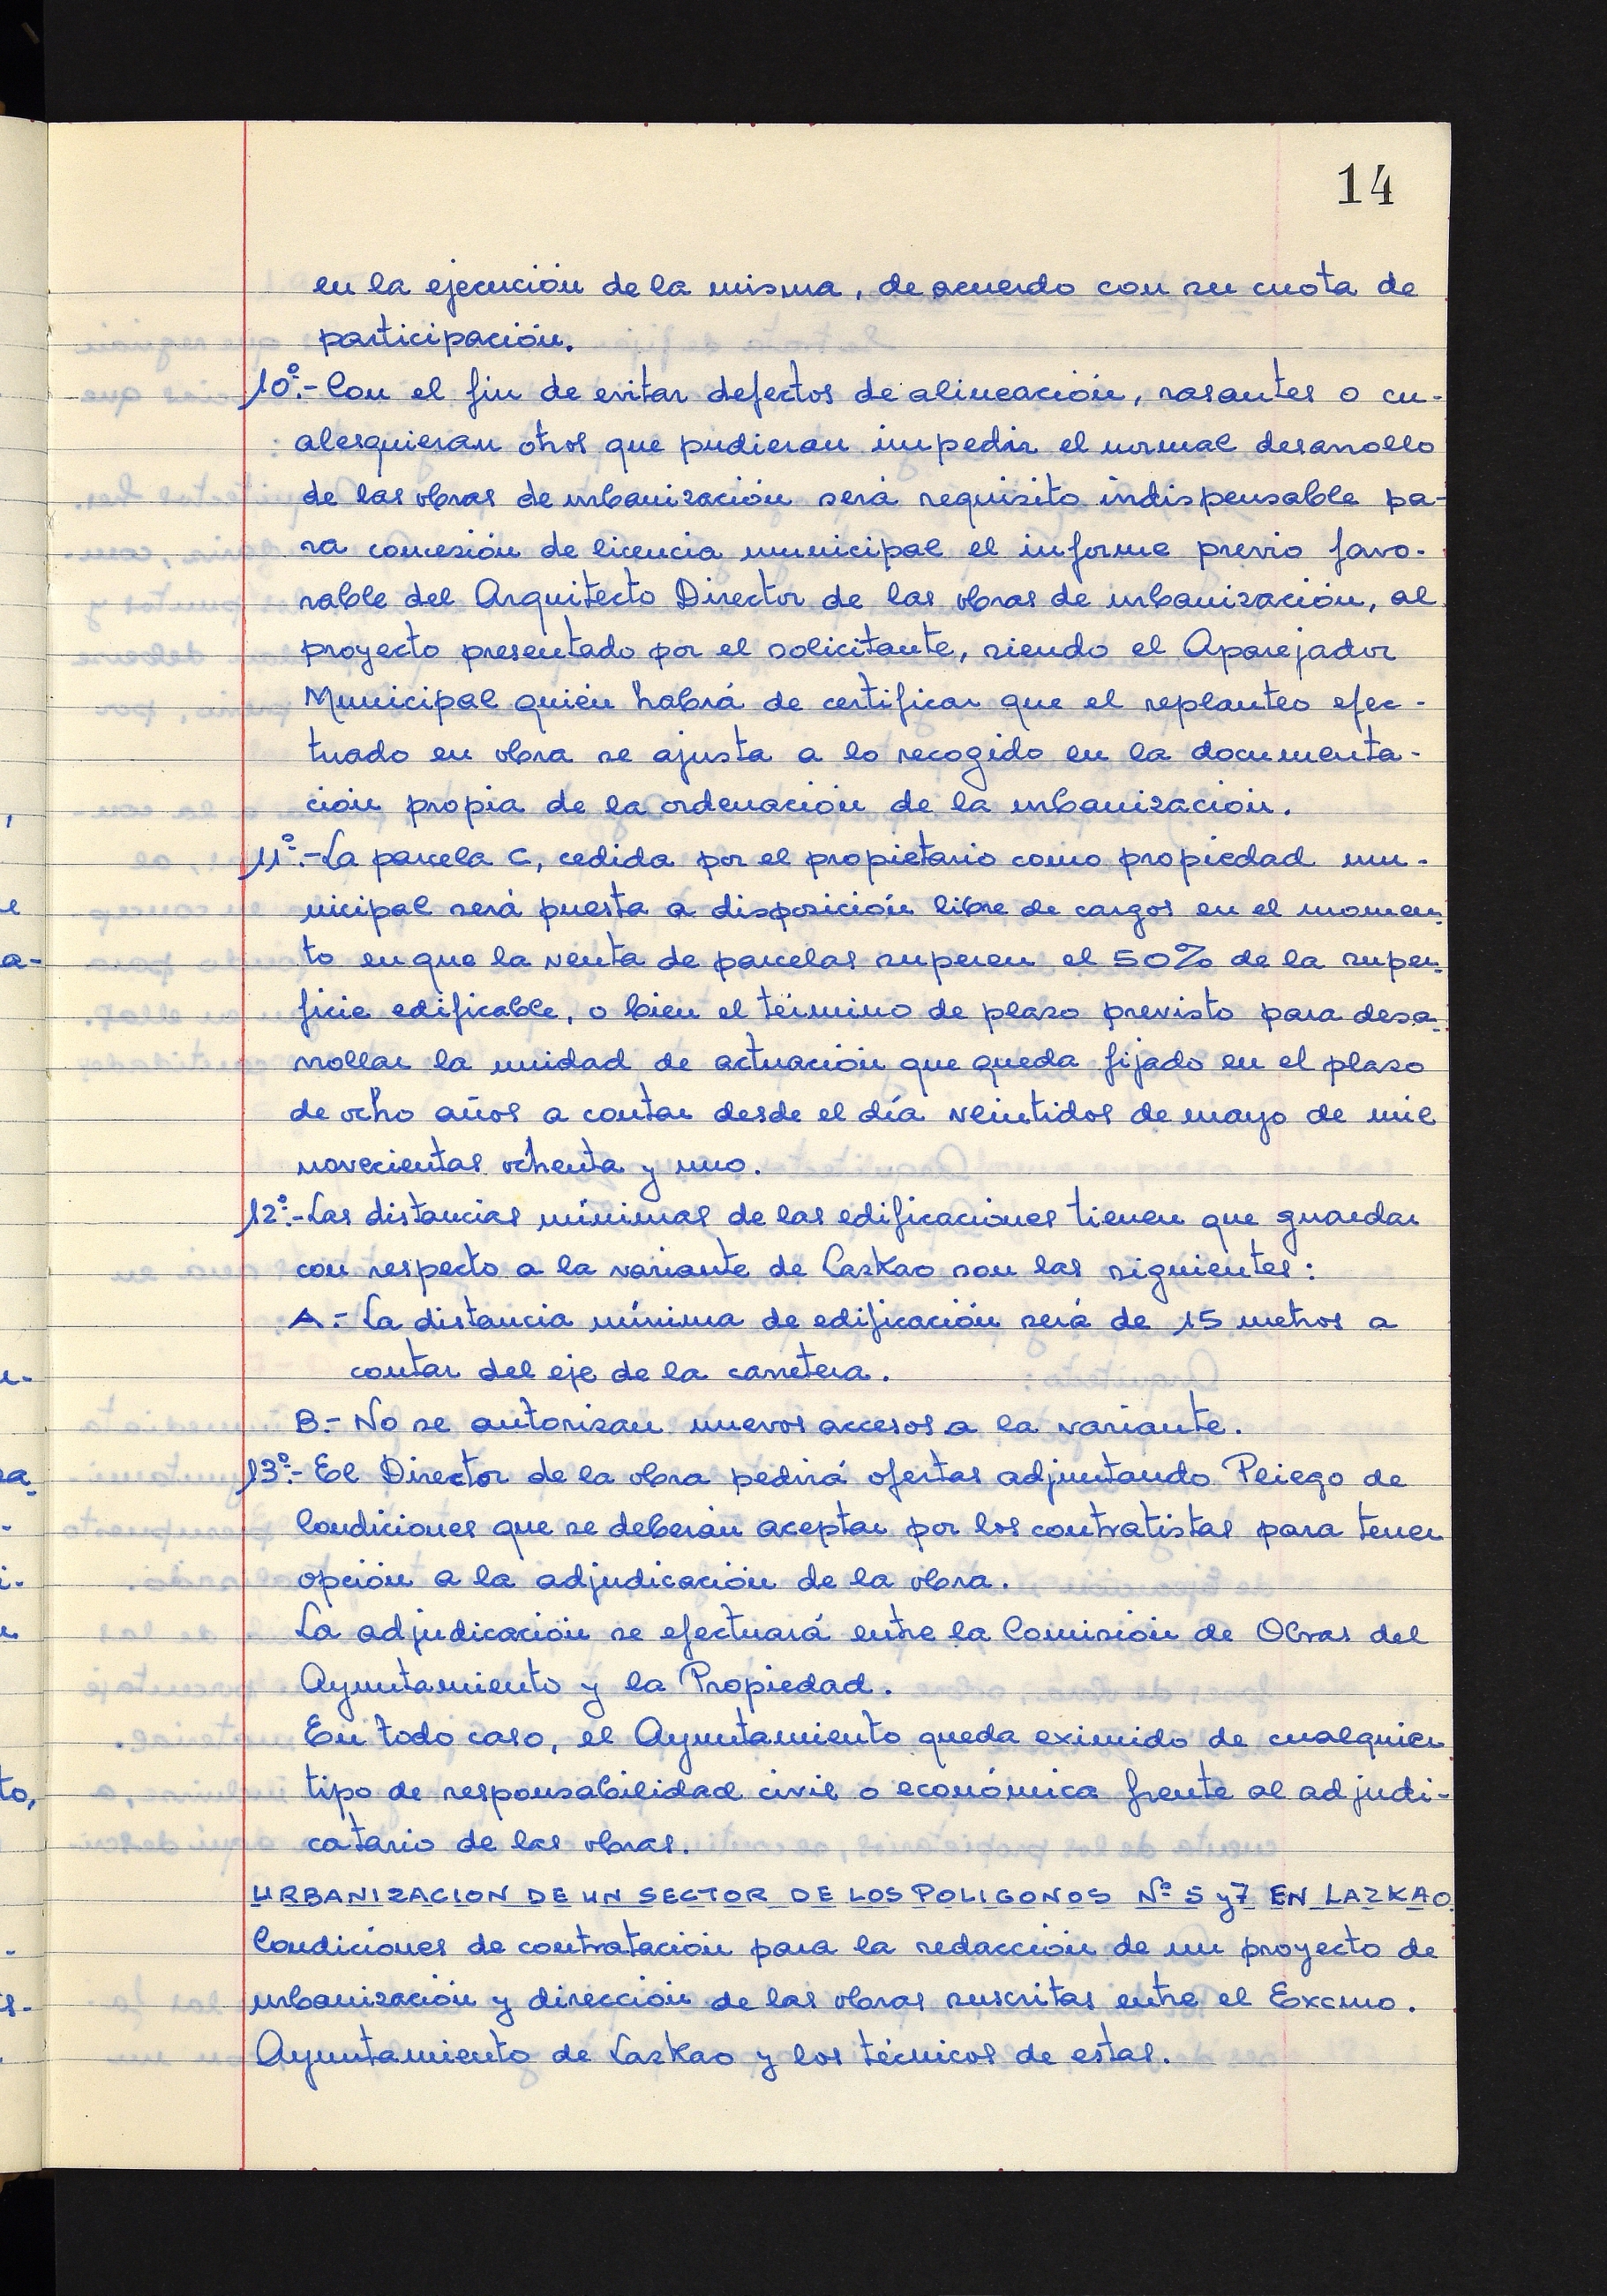 14
en la ejecución de la misma, de acuerdo con su cuota de
participación.
10º.- Con el fin de evitar defectos de alineación, rasantes o cu-
alesquieran otros que pudieran impedir el normal desarrollo
de las obras de urbanización será requisito indispensable pa-
ra concesión de licencia municipal el informe previo favo-
rable del Arquitecto Director de las obras de urbanización, al
proyecto presentado por el solicitante, siendo el Aparejador
Municipal quién habrá de certificar que el replanteo efec-
tuado en obra se ajusta a lo recogido en la documenta-
ción propia de la ordenación de la urbanización.
11º.- La parcela C, cedida por el propietario como propiedad mu-
nicipal será puesta a disposición libre de cargos en el momen-
to en que la venta de parcelas superen el 50% de la super-
ficie edificable, o bien el término de plazo previsto para desa-
rrollar la unidad de actuación que queda fijado en el plazo
de ocho años a contar desde el día veintidos de mayo de mil
novecientas ochenta y uno.
12º.- Las distancias mínimas de las edificaciones tienen que guardar
con respecto a la variante de Lazkao son las siguientes:
A.- La distancia mínima de edificación será de 15 metros a
contar del eje de la carretera.
B.- No se autorizan nuevos accesos a la variante.
13º.- El Director de la obra pedirá ofertas adjuntando Pliego de
Condiciones que se deberán aceptar por los contratistas para tener
opción a la adjudicación de la obra.
La adjudicación se efectuará entre la Comisión de Obras del
Ayuntamiento y la Propiedad.
En todo caso, el Ayuntamiento queda eximido de cualquier
tipo de responsabilidad civil o económica frente al adjudi-
catario de las obras.
URBANIZACION DE UN SECTOR DE LOS POLIGONOS Nº 5 y 7 EN LAZKAO
Condiciones de contratación para la redacción de un proyecto de
urbanización y dirección de las obras suscritas entre el Excmo.
Ayuntamiento de Lazkao y los técnicos de estas.